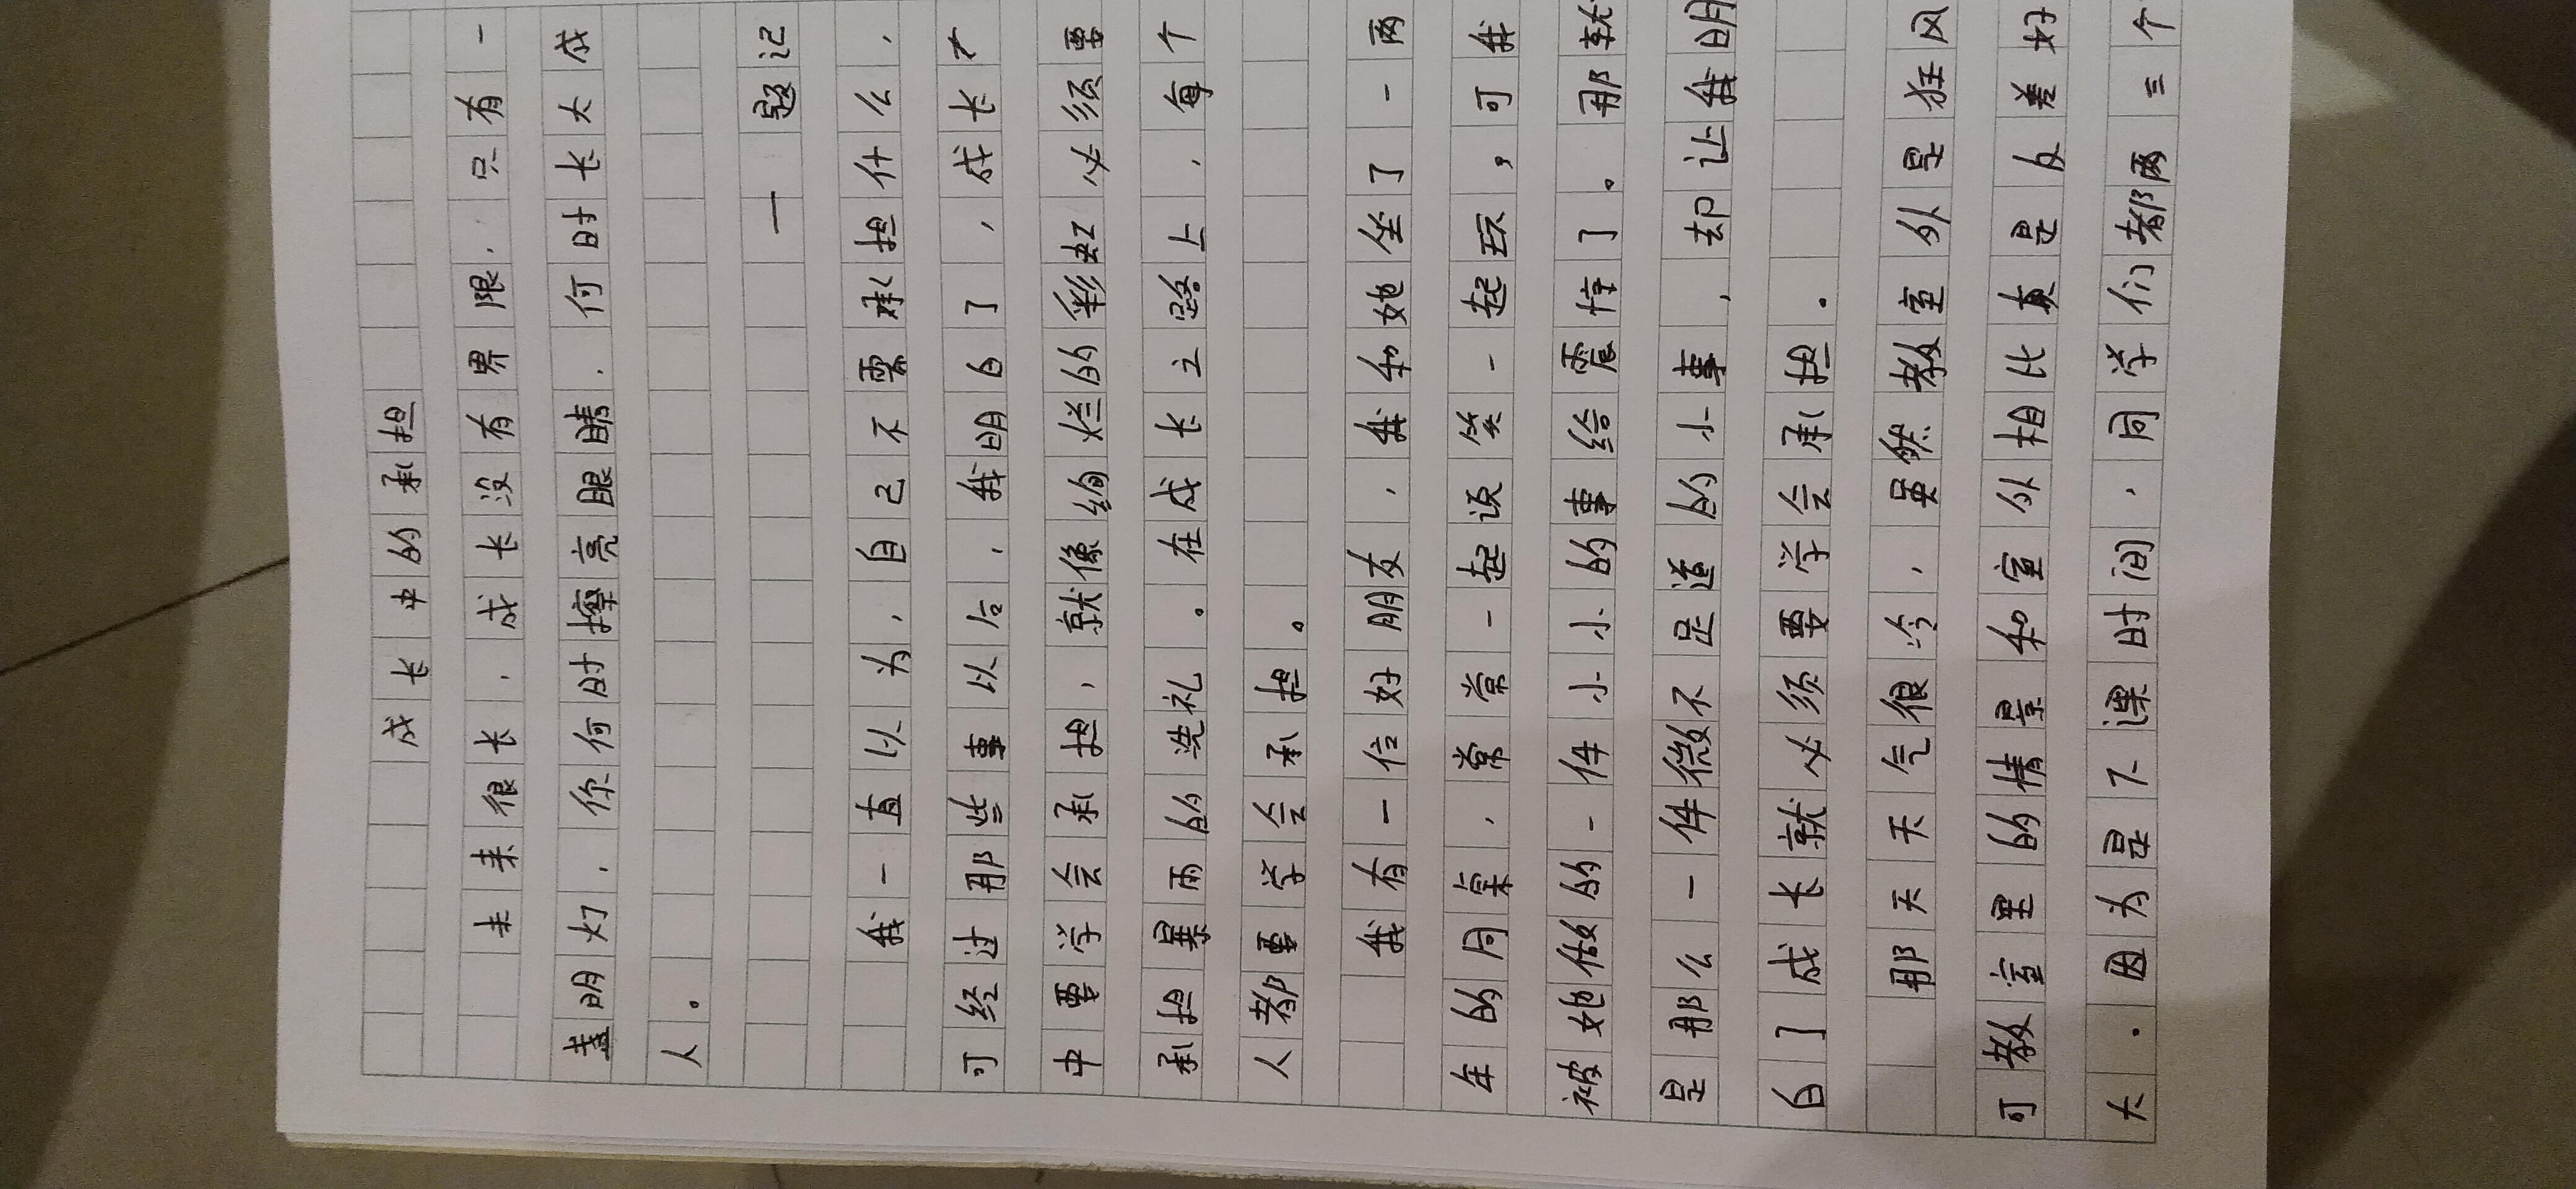 成长中的承担
未来很长，成长没有界限，只有一
盏明灯，你何时擦亮眼睛，何时长大成
人。
——题记
我一直以为，自己不需承担什么，
可经过那些事以后，我明白了，成长才
中要学会承担，就像绚烂的彩虹必须要
承担暴雨的洗礼。在成长之路上，每个
人都要学会承担。
我有一位好朋友，我和她坐了一两
年的同桌，常常一起谈笑一起玩，可我
被她做的一件小小的事给震惊了。那就
是那么一件微不足道的小事，却让我明
白了成长就必须要学会承担。
那天天气很冷，虽然教室外是狂风
可教室里的情景和室外相比真是反差好
大。因为是下课时间，同学们都两三个